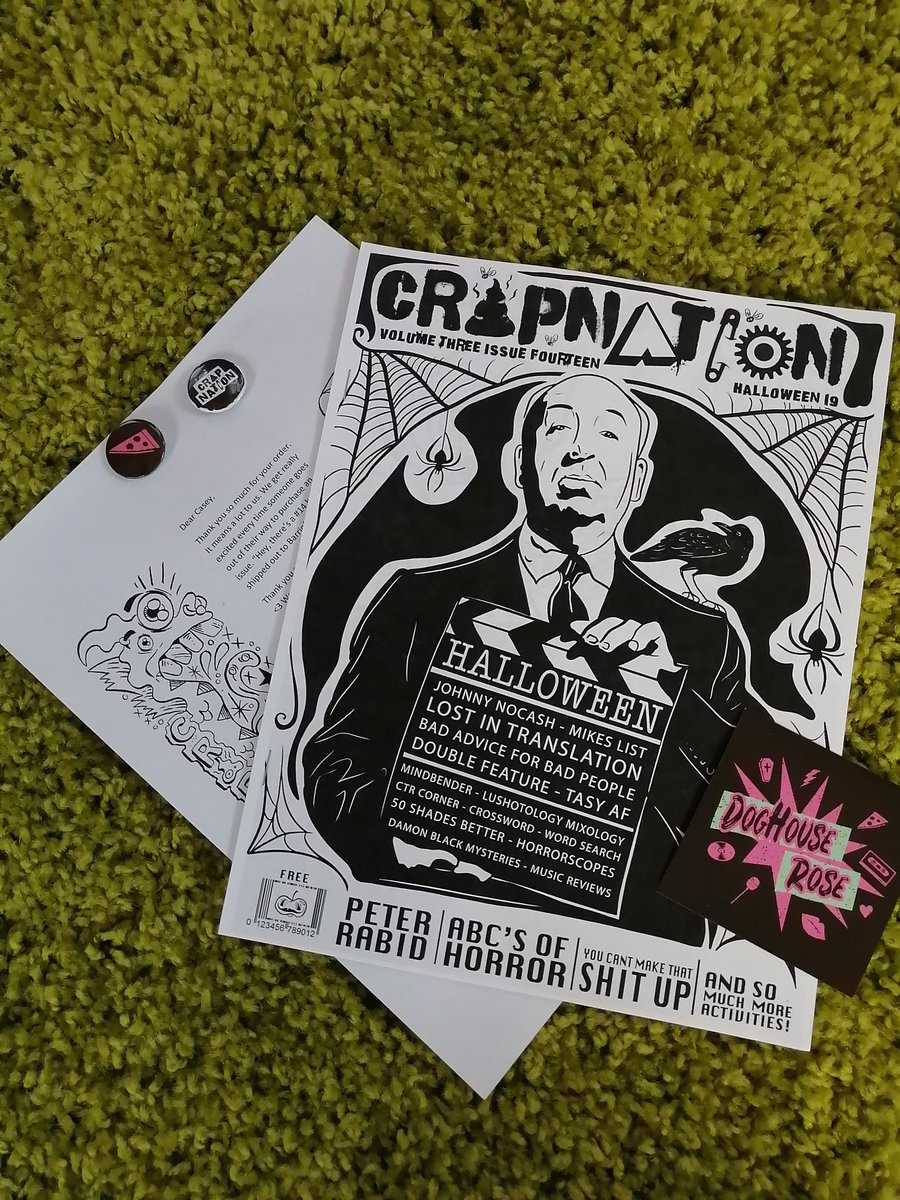 CRAPNATION
VOLUME THREE ISSUE FOURTEEN
HALLOWEEN 19
CRAP
NATION
Dear Casey,
Thank you so much for your order.
It means a lot to us. We get really
excited every time someone goes
out of their way to purchase an
issue. "Hey, there's a #14
shipped out to
Thank you
<3
HALLOWEEN
JOHNNY NOCASH - MIKES LIST
LOST IN TRANSLATION
BAD ADVICE FOR BAD PEOPLE
DOUBLE FEATURE - TASY AF
MINDBENDER - LUSHOTOLOGY MIXOLOGY
CTR CORNER - CROSSWORD - WORD SEARCH
50 SHADES BETTER - HORRORSCOPES
DAMON BLACK MYSTERIES - MUSIC REVIEWS
DOGHOUSE
ROSE
FREE
0 123456 789012
PETER
RABID
ABC'S OF
HORROR
YOU CANT MAKE THAT
SHIT UP
AND SO
MUCH MORE
ACTIVITIES!